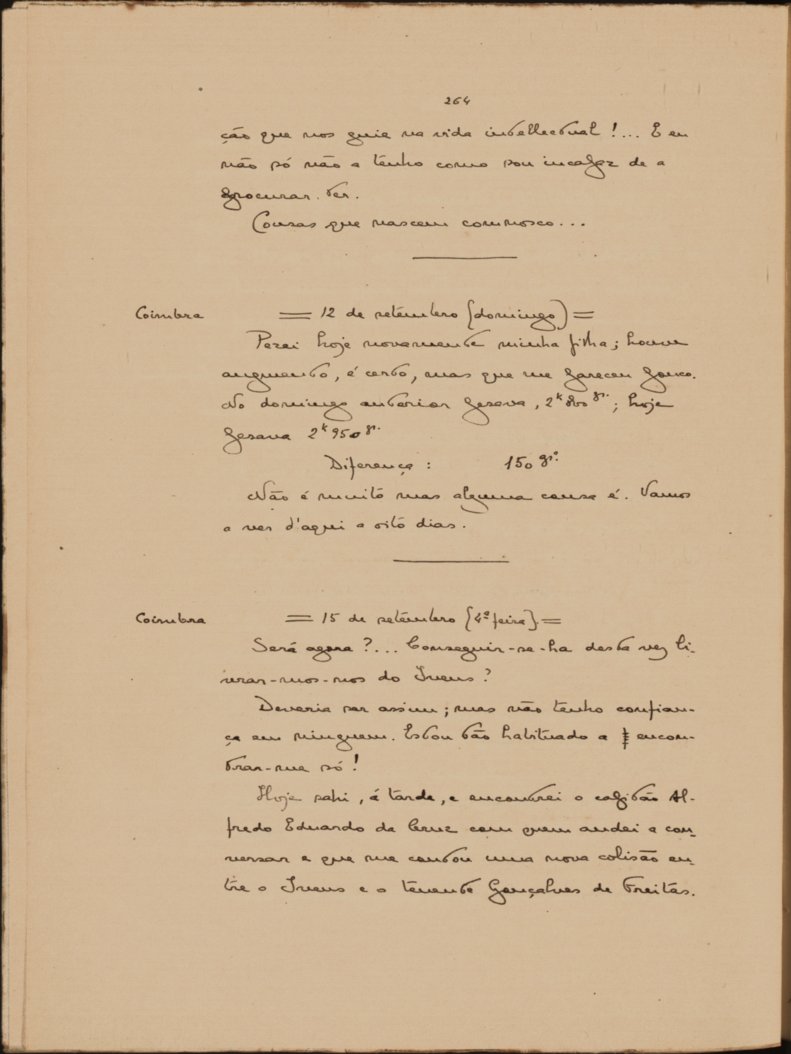 264
ção que nos guie na vida intellectual!... E eu
não só não a tenho como sou incapaz de a
procurar ter.
Cousas que nascem comnosco...
Coimbra = 12 de setembro (domingo) =
Pezei hoje novamente minha filha; houve
augmento, é certo, mas que me pareceu pouco.
No domingo anterior pesava, 2k 800 gr.; hoje
pesava 2k 950 gr.
Diferença: 150 gr.
Não é muito mas alguma cousa é. Vamos
a ver d'aqui a oito dias.
Coimbra = 15 de setembro (4ª feira) =
Será agora?... Conseguir-se-ha desta vez li-
vrar-mos-nos do Ivens?
Deveria ser assim; mas não tenho confian-
ça em ninguem. Estou tão habituado a encon-
trar-me só!
Hoje sahi, á tarde, e encontrei o capitão Al-
fredo Eduardo da Cruz com quem andei a con-
versar e que me contou uma nova colisão en-
tre o Ivens e o tenente Gonçalves de Freitas.